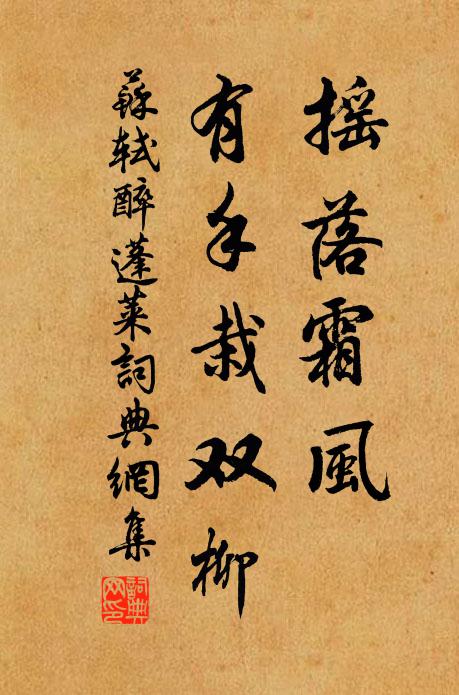 搖落霜風
有手栽双柳
蘇軾醉蓬萊詞典網集
詞典网印